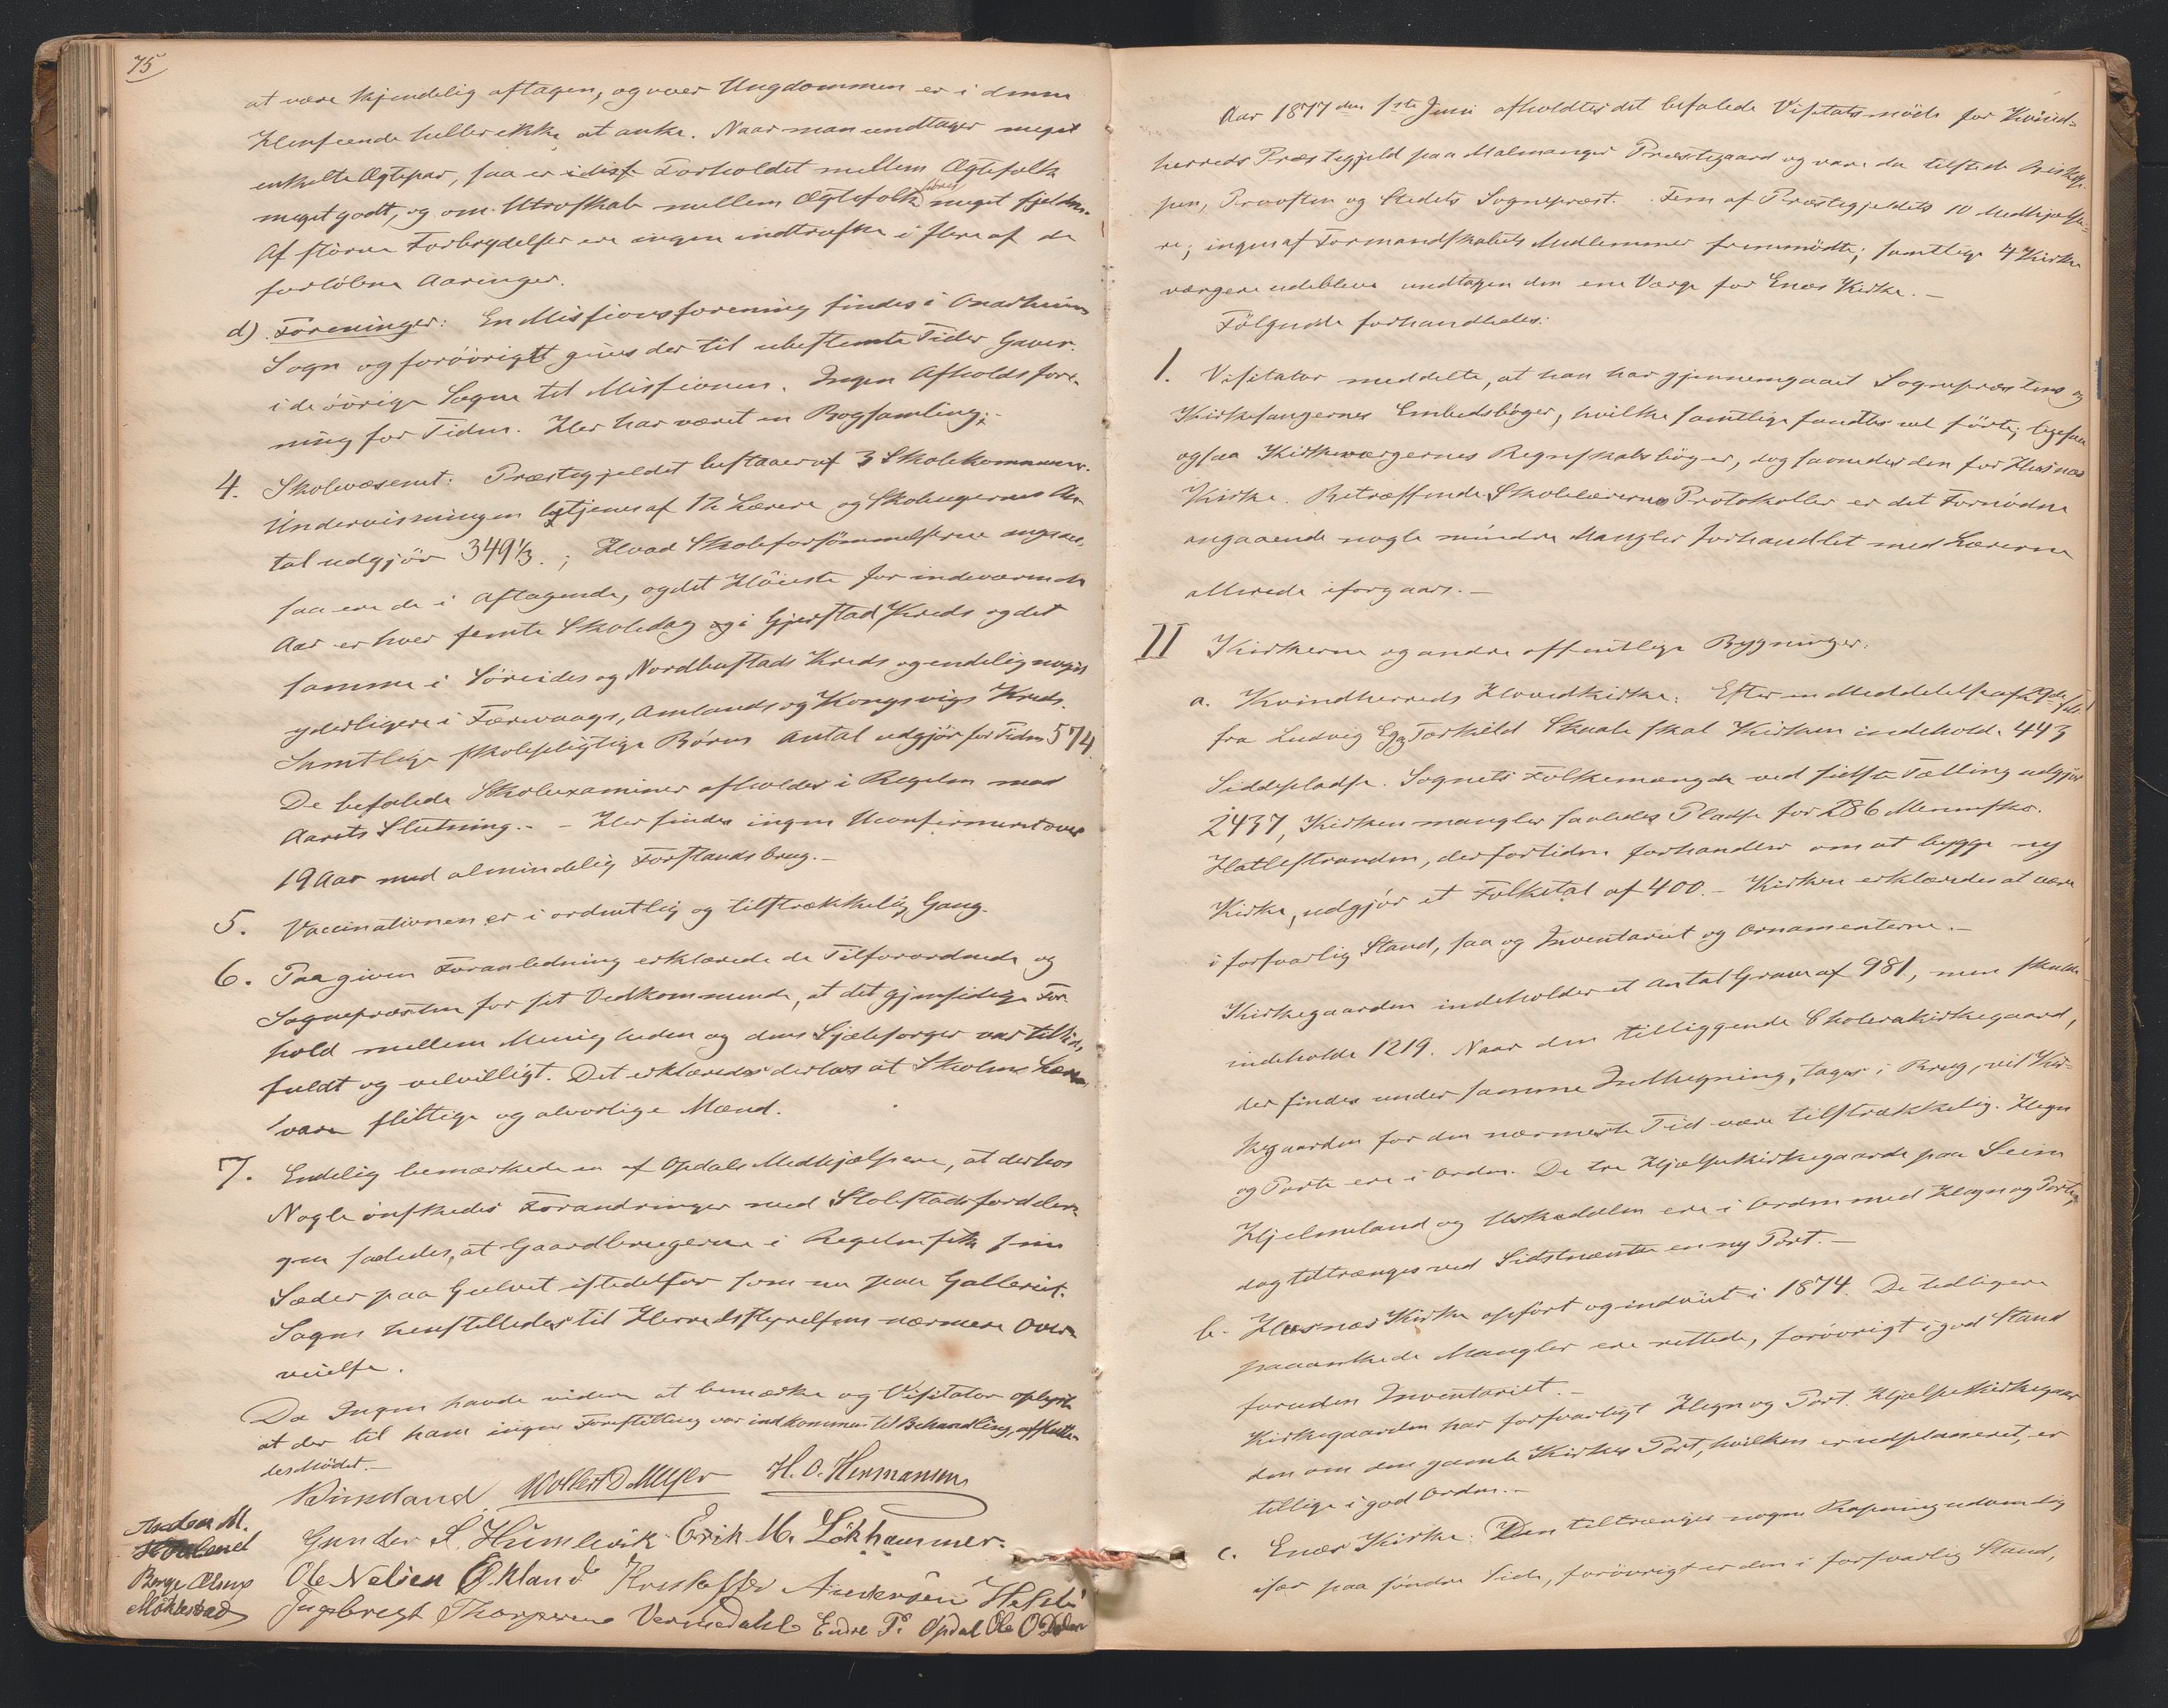 75
at være kjendelig aftagen, og over Ungdommen er i denne
Henseende heller ikke at anke. Naar man undtager meget
enkelte Ægtepar, saa er i disse Forholdet mellem Ægtefolk
meget godt, og om Utroskab mellem Ægtefolk høres meget sjelden.
Af større Forbrydelser ere ingen indtrufne i flere af de
forløbne Aaringer.
d) Foreninger: En Missionsforening findes i Onarheims
Sogn og forøvrigt gives der til ubestemte Tider Gaver
i de øvrige Sogne til Missionen. Ingen Afholdsfore-
ning for Tiden. Her har været en Bogsamling.
4. Skolevæsenet: Præstegjeldet bestaaer af 3 Skolekommuner.
Undervisningen betjenes af 12 Lærere og Skoleugernes An-
tal udgjør 349 1/3.; Hvad Skoleforsømmelserne angaae,
saa ere de i Aftagende, og det Høieste for indeværende
Aar er hver femte Skoledag i Gjerstad Kreds og det
samme i Søreides og Nordhustads Kreds og endelig noget
yderligere i Færevaags, Amlands og Kongsvigs Kreds.
Samtlige skolepligtige Børns Antal udgjør for Tiden 574.
De befalede Skoleexaminer afholdes i Regelen med
Aarets Slutning. - Her findes ingen Uconfirmeret over
19 Aar med almindelig Forstandsbrug. -
5. Vaccinationen er i ordentlig og tilstrækkelig Gang.
6. Paa given Foranledning erklærede de Tilforordnede og
Sognepræsten for sit Vedkommende, at det gjensidige For
hold mellem Menigheden og dens Sjælesørger var tillids
fuldt og velvilligt. Det erklæredes derhos at Skolens Lærere
vare flittige og alvorlige Mænd.
7. Endelig bemærkede en af Opdals Medhjælpere, at derhos
Nogle ønskedes Forandringer med Stolestadsfordelin-
gen saaledes, at Gaardbrugerne i Regelen fik sine
Sæder paa Gulvet istedetfor som nu paa Galleriet.
Sagen henstilledes til Herredsstyrelsens nærmere Over-
veielse.
Da Ingen havde videre at bemærke og Visitator oplyste
at der til ham ingen Forestilling var indkommen til Behandling, afslutte-
des Mødet. -
Wollert D Meyer H. O. Hermansen
Gunder S. Humlevik Erik M. Løkhammer.
Anders M.
Ole Nelsen Økland Kristoffer Andersen
Børge Olsen
Ingebregt Vernedahl Endre P. Opdal Ole O
Aar 1877 den 1ste Juni afholdtes det befalede Visitatsmøde for Kvind-
herreds Præstegjeld paa Malmanger Præstegaard og vare da tilstede Bisko-
pen, Provsten og Stedets Sognepræst. Fem af Præstegjeldets 10 Medhjælpe-
re; ingen af Formandskabets Medlemmer fremmødte; samtlige 4 Kirke
værgere udebleve undtagen den ene Værge for Enæs Kirke. -
Følgende forhandledes:
1. Visitator meddelte, at han har gjennemgaaet Sognepræstens og
Kirkesangernes Embedsbøger, hvilke samtlige fandtes vel førte; ligesaa
ogsaa Kirkeværgernes Regnskabsbøger, dog savnedes den for Husnæs
Kirke. Betræffende Skolelærernes Protokoller er det Fornødne
angaaende nogle mindre Mangler forhandlet med Lærerne
allerede iforgaars. -
II Kirkerne og andre offentlige Bygninger.
a. Kvindherreds Hovedkirke: Efter en Meddelelse af 29de
fra Ludvig Torkild Skaale skal Kirken indeholde 443
Siddepladse. Sognets Folkemængde ved sidste Tælling udgjør
2437, Kirken mangler saaledes Pladse for 286 Mennesker.
Hatlestranden, der for tiden forhandler om at bygge ny
Kirke, udgjør et Folketal af 400. - Kirken erklæredes at være
i forsvarlig Stand, saa og Inventariet og Ornamenterne. -
Kirkegaarden indeholder et Antal Grave af 981, men skulde
indeholde 1219. Naar den tilliggende Cholerakirkegaard,
der findes under samme Indhegning, tages i Brug, vil Kir-
kegaarden for den nærmeste Tid være tilstrækkelig. Hegn
og Porte ere i Orden. De tre Hjælpekirkegaarde paa Seim
Hjelmeland og Uskedalen ere i Orden med Hegn og Porte,
dog tiltrænges ved Sidstnævnte en ny Port. -
b. Husnæs Kirke opført og indviet i 1874. De tidligere
paaankede Mangler ere rettede, forøvrigt i god Stand
foruden Inventariet. -
Kirkegaarden har forsvarligt Hegn og Port. Hjælpekirkegaar
den om den gamle Kirkes Port, hvilken er udplaneret, er
tillige i god Orden. -
c. Enæs Kirke: Den tiltrænger nogen Rapning udvendig
især paa søndre Side, forøvrigt er den i forsvarlig Stand,